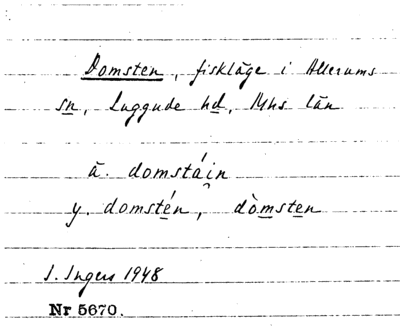 Domsten, fiskläge i Allerums
sn, Luggude hd, Mhs län
ä. domstái̯n
y. domstén, dòmsten
I. Ingers 1948
Nr 5670.